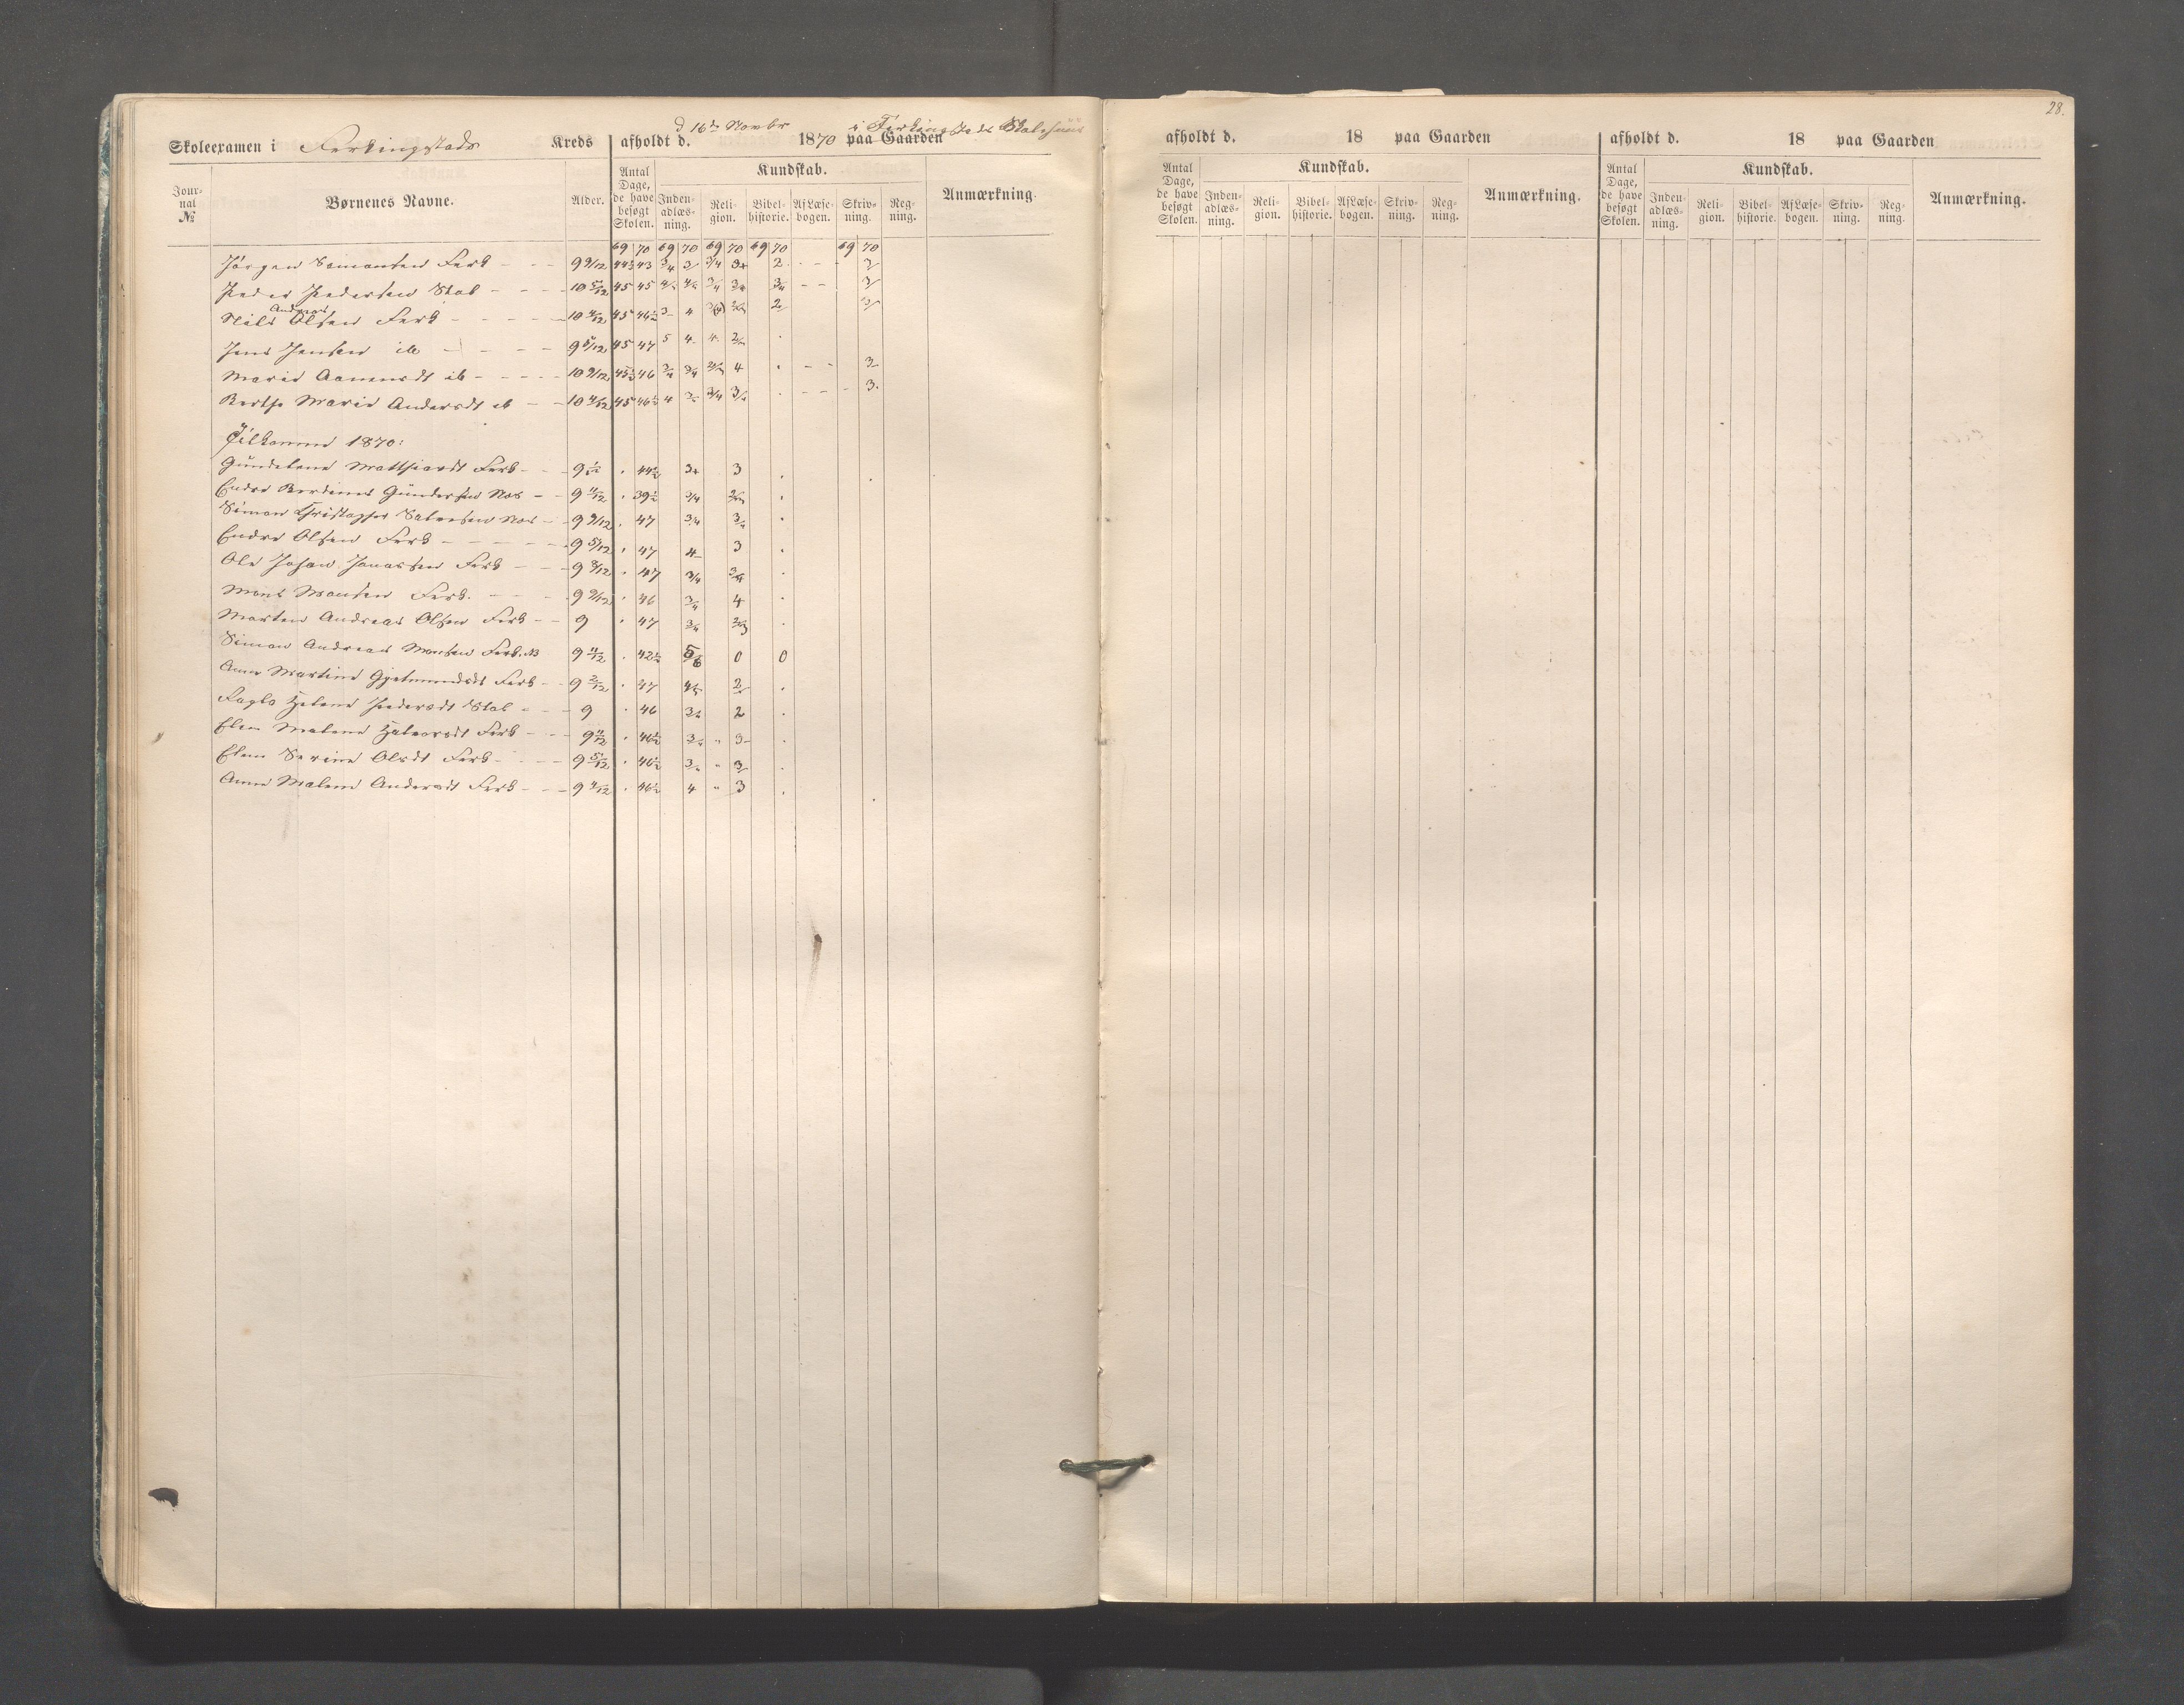 28.
Skoleexamen i Ferkingstads Kreds afholdt d. 16de Novbr 1870 paa Gaarden i Ferkingstads Skolehuus
Jour-nal № Børnenes Navne. Alder. Antal Dage, de have besøgt Skolen. Kundskab. Inden-adlæs-ning. Reli-gion. Bibel-historie. Af Læse-bogen. Skriv-ning. Reg-ning. Anmærkning.
69 70 69 70 69 70 69 70 69 70
Jørgen Simonsen Ferk - - - 9 9/12 44½ 43 3/4 3 3/4 3+ 2 - - - 3
Peder Pedersen Stol - - - - 10 5/12 45 45 3/4 - - 3
Andreas
Nils Olsen Ferk - - - - - 10 45 46½ 3 4 2 3
Jens Jensen ib - - - - 9 5/12 45 47 5 4 4
Marie Aamundsdt ib - - - - 10 9/12 45½ 46 3/4 4 - - 3
Berthe Marie Andersdt ib - - 10 45 46½ 4 3/4 - - - 3
Tilkomne 1870:
Gundelene Matthiasdt Ferk - - - 9 44½ 3+ 3
Endre Berdines Gundersen Nes - - 9 11/12 39½ 3/4
Simon Christopher Salvesen Nes - - 9 9/12 47 3/4
Endre Olsen Ferk - - - - - 9 5/12 47 4 3
Ole Johan Jonassen Ferk - - - 9 8/12 47 3/4
Mons Monsen Ferk. - - - - 9 9/12 46 3/4 4
Morten Andreas Olsen Ferk - - 9 47 3/4
Simon Andreas Monsen Ferk. 9 42½ 5/6 0 0
Anne Martine Gjetmundsdt Ferk - - 9 2/12 47 2
Helene Pedersdt Stol - - - 9 46 2
Elen Malene Halvorsdt Ferk - - - 9 46½ " 3
Elene Serine Olsdt Ferk - - - - 9 5/12 46½ " 3
Anne Malene Andersdt Ferk - - - 9 46½ 4 " 3
afholdt d. 18 paa Gaarden
Antal Dage, de have besøgt Skolen. Kundskab. Inden-adlæs-ning. Reli-gion. Bibel-historie. Af Læse-bogen. Skriv-ning. Reg-ning. Anmærkning.
afholdt d. 18 paa Gaarden
Antal Dage, de have besøgt Skolen. Kundskab. Inden-adlæs-ning. Reli-gion. Bibel-historie. Af Læse-bogen. Skriv-ning. Reg-ning. Anmærkning.